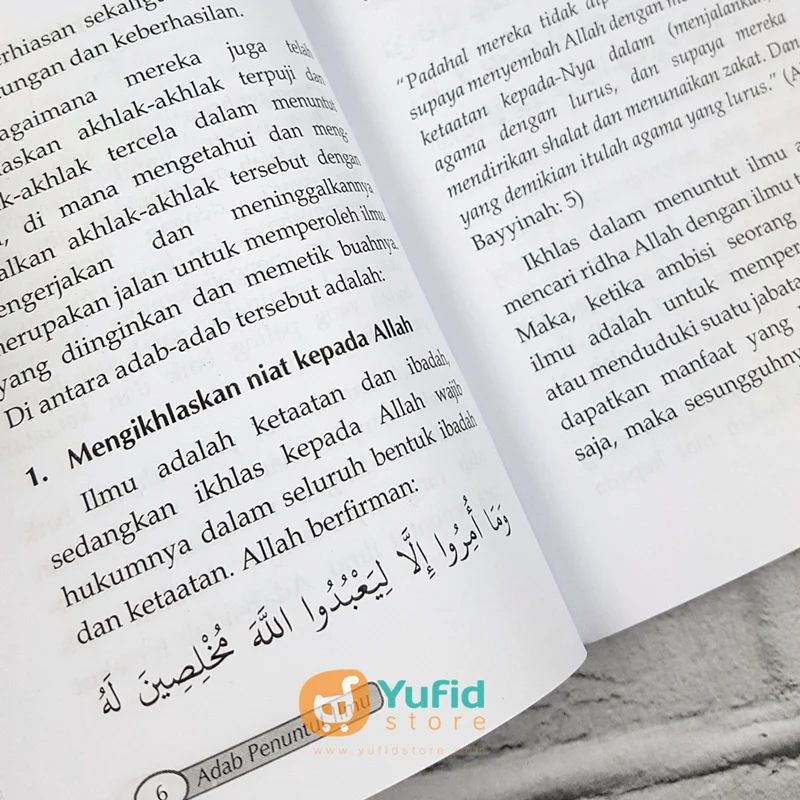 sekaligus
ungan dan keberhasilan.
mereka juga telah
akhlak-akhlak terpuji dan
tercela dalam menuntut
di mana mengetahui dan meng-
akhlak-akhlak tersebut dengan
dan meninggalkannya
jalan untuk memperoleh ilmu
yang diinginkan dan memetik buahnya.
Di antara adab-adab tersebut adalah:
1. Mengikhlaskan niat kepada Allah
Ilmu adalah ketaatan dan ibadah,
sedangkan ikhlas kepada Allah wajib
hukumnya dalam seluruh bentuk ibadah
dan ketaatan. Allah berfirman:
وَمَا أُمِرُوا إِلَّا لِيَعْبُدُوا اللَّهَ مُخْلِصِينَ لَهُ
6 Adab Penuntut Ilmu
"Padahal mereka tidak
supaya menyembah Allah dengan
ketaatan kepada-Nya dalam (menjalankan)
agama dengan lurus, dan supaya mereka
mendirikan shalat dan menunaikan zakat. Dan
yang demikian itulah agama yang lurus."
Bayyinah: 5)
Ikhlas dalam menuntut ilmu
mencari ridha Allah dengan ilmu
Maka, ketika ambisi seorang
ilmu adalah untuk
atau menduduki suatu
dapatkan manfaat yang
saja, maka
Yufid
store
www.yufidstore.com